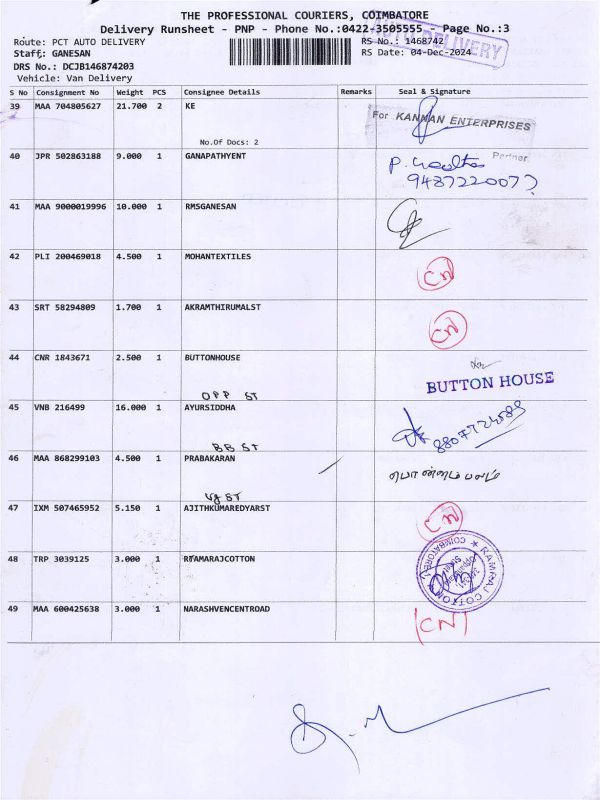 THE PROFESSIONAL COURIERS, COIMBATORE
Delivery Runsheet - PNP - Phone No.:0422-3505555 - Page No.:3
Route: PCT AUTO DELIVERY
Staff: GANESAN
DRS No.: DCJB146874203
Vehicle: Van Delivery
RS No.: 1468742
RS Date: 04-Dec-2024
AUTO DELIVERY
S No Consignment No Weight PCS Consignee Details Remarks Seal & Signature
39 MAA 704805627 21.700 2 KE
For KANNAN ENTERPRISES
No.Of Docs: 2
Partner
40 JPR 502863188 9.000 1 GANAPATHYENT
9487220073
41 MAA 9000019996 10.000 1 RMSGANESAN
42 PLI 200469018 4.500 1 MOHANTEXTILES
CN
43 SRT 58294809 1.700 1 AKRAMTHIRUMALST
CN
44 CNR 1843671 2.500 1 BUTTONHOUSE
BUTTON HOUSE
OPP ST
45 VNB 216499 16.000 1 AYURSIDDHA
BB ST
46 MAA 868299103 4.500 1 PRABAKARAN
VG ST
47 IXM 507465952 5.150 1 AJITHKUMAREDYARST
CN
48 TRP 3039125 3.000 1 RAMARAJCOTTON
RAMRAJ COTTON
COIMBATORE
49 MAA 600425638 3.000 1 NARASHVENCENTROAD
CN